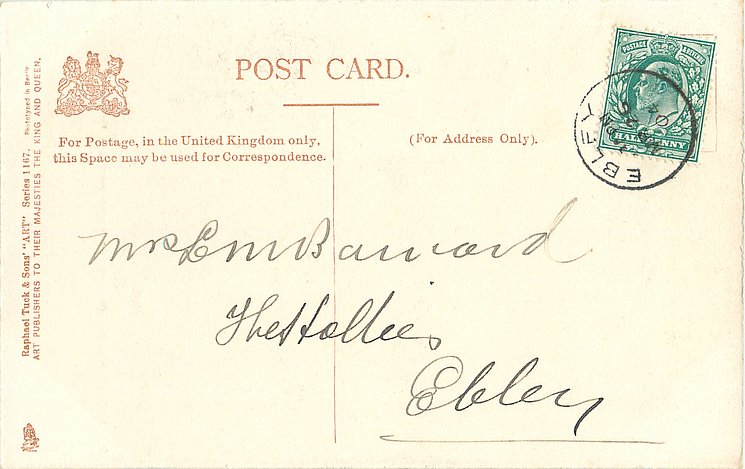 POST CARD.
For Postage, in the United Kingdom only,
this Space may be used for Correspondence.
(For Address Only).
POSTAGE REVENUE
HALFPENNY
EBLEY
04
Mrs E M Barnard
The Hollies
Ebley
Raphael Tuck & Sons' "ART" Series 1167. Phototyped in Berlin.
ART PUBLISHERS TO THEIR MAJESTIES THE KING AND QUEEN.